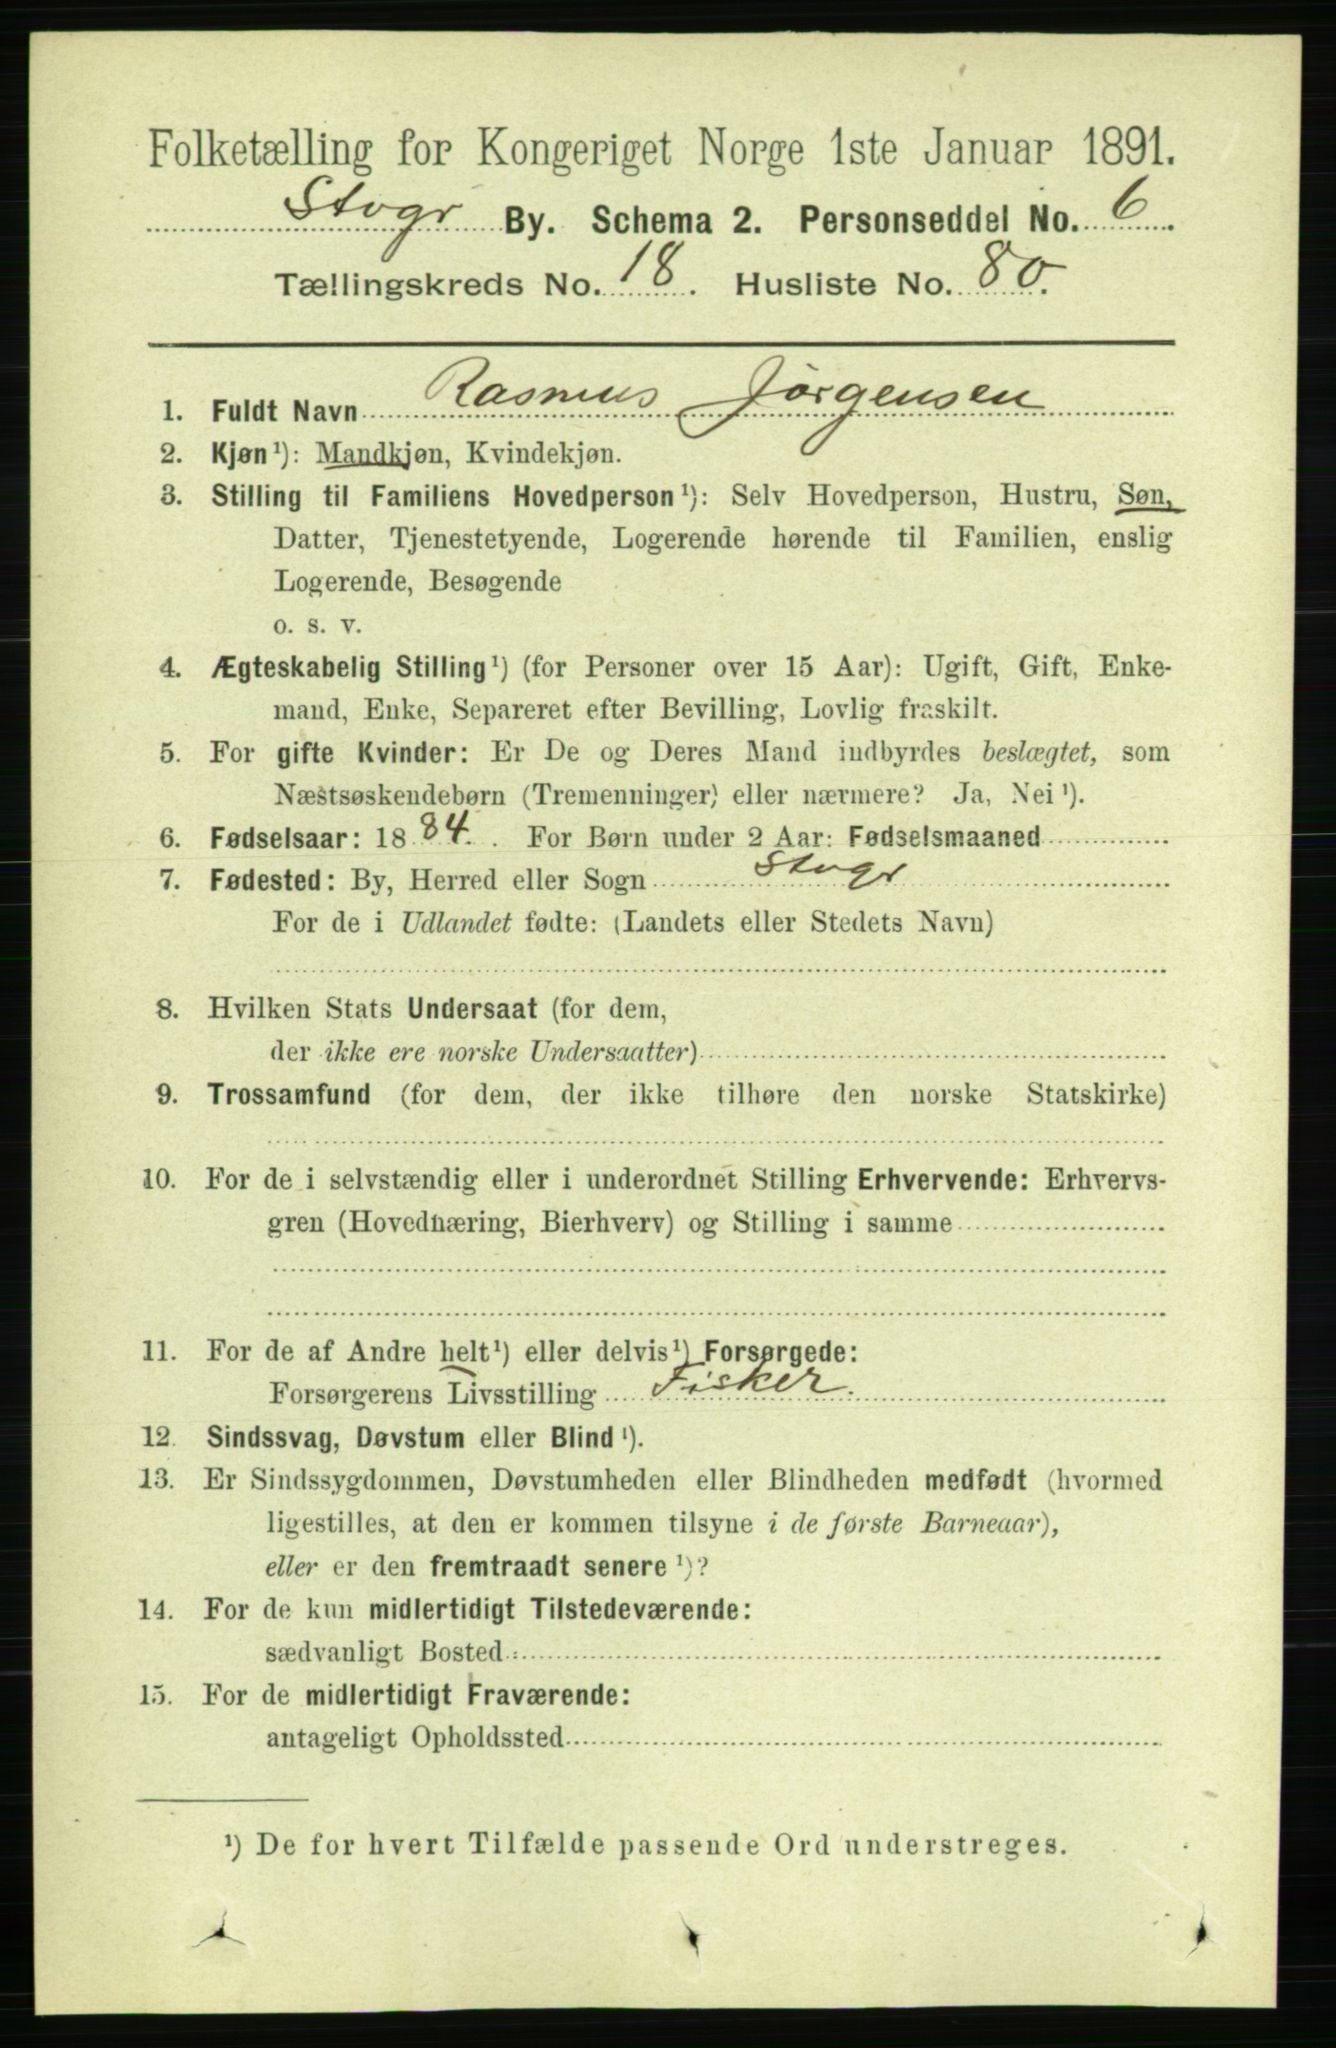 Folketælling for Kongeriget Norge 1ste Januar 1891.
Stvgr By. Schema 2. Personseddel No. 6.
Tællingskreds No. 18. Husliste No. 80.
1. Fuldt Navn Rasmus Jørgensen
2. Kjøn¹): Mandkjøn, Kvindekjøn.
3. Stilling til Familiens Hovedperson¹): Selv Hovedperson, Hustru, Søn,
Datter, Tjenestetyende, Logerende hørende til Familien, enslig
Logerende, Besøgende
o. s. v.
4. Ægteskabelig Stilling¹) (for Personer over 15 Aar): Ugift, Gift, Enke-
mand, Enke, Separeret efter Bevilling, Lovlig fraskilt.
5. For gifte Kvinder: Er De og Deres Mand indbyrdes beslægtet, som
Næstsøskendebørn (Tremenninger) eller nærmere? Ja, Nei¹).
6. Fødselsaar: 1884. For Børn under 2 Aar: Fødselsmaaned
7. Fødested: By, Herred eller Sogn Stvgr
For de i Udlandet fødte: (Landets eller Stedets Navn)
8. Hvilken Stats Undersaat (for dem,
der ikke ere norske Undersaatter)
9. Trossamfund (for dem, der ikke tilhøre den norske Statskirke)
10. For de i selvstændig eller i underordnet Stilling Erhvervende: Erhvervs-
gren (Hovednæring, Bierhverv) og Stilling i samme
11. For de af Andre helt¹) eller delvis¹) Forsørgede:
Forsørgerens Livsstilling Fisker.
12. Sindssvag, Døvstum eller Blind¹).
13. Er Sindssygdommen, Døvstumheden eller Blindheden medfødt (hvormed
ligestilles, at den er kommen tilsyne i de første Barneaar),
eller er den fremtraadt senere¹)?
14. For de kun midlertidigt Tilstedeværende:
sædvanligt Bosted:
15. For de midlertidigt Fraværende:
antageligt Opholdssted
¹) De for hvert Tilfælde passende Ord understreges.